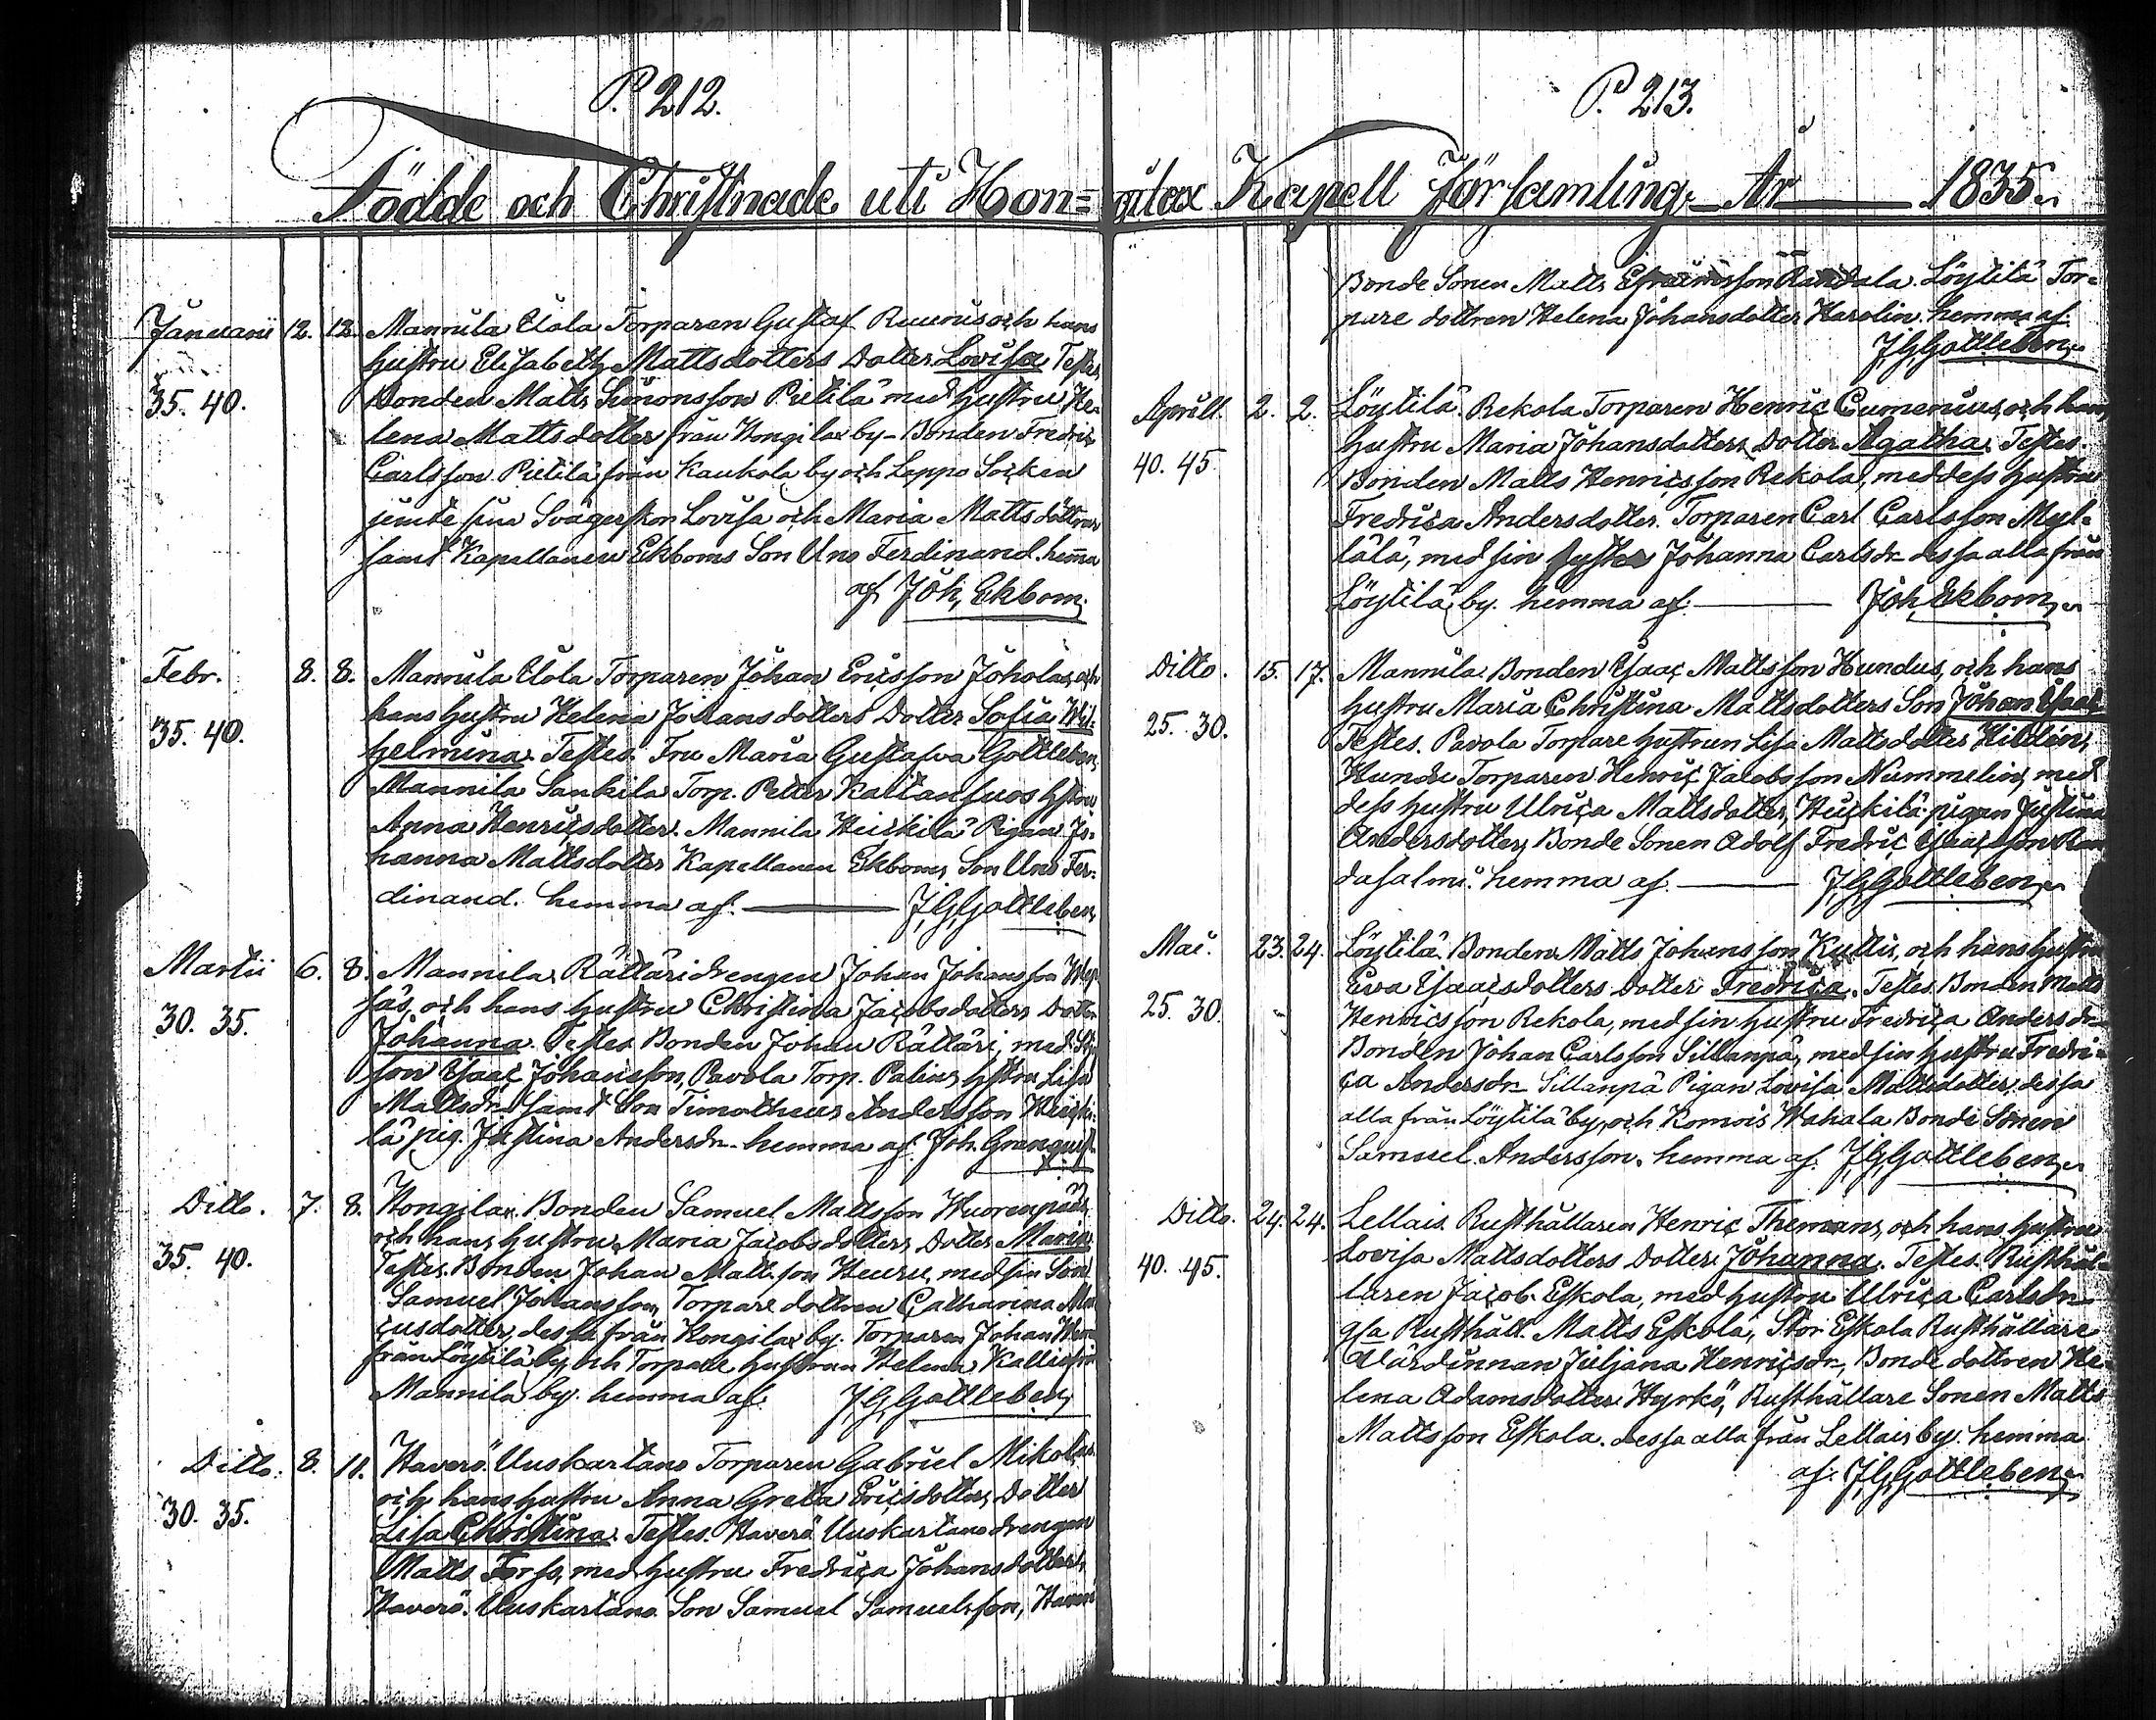 P. 212.
Födde och Christnade uti Hon=
Januarii 12. 12. Mannila Elola Torparen Gustaf Ruuru och hans
hustru Elisabeth Mattsdotters Dotter Lovisa Testes
35. 40. Bonden Matts Simonsson Pietilä med hustru He-
lena Mattsdotter från Hongilax by - Bonden Fredric
Carlsson Pietilä från Kaukola by och Loppo Socken
jemte sina Svägerskor Lovisa och Maria Mattsdöttrar
samt Kapellanen Ekboms Son Uno Ferdinand. hemma
af Joh. Ekbom.
Febr. 8. 8. Mannila Elola Torparen Johan Ericsson Joholas och
hans hustru Helena Johansdotters Dotter Sofia Wil-
35. 40. helmina. Testes. Fru Maria Gustafva Gottleben,
Mannila Sankila Torp. Petter Kattansuos hstru
Anna Henricsdotter. Mannila Heickilä Pigan Jo-
hanna Mattsdotter Kapellanen Ekboms Son Uno Fer-
dinand. hemma af. J.G. Gottleben
Martii 6. 8. Mannila. Rättäri drengen Johan Johansson
och hans hustru Christina Jacobsdotters Dotter
30. 35. Johanna. Testes Bonden Johan Rättäri, med
son Isaac Johansson, Pavola Torp. Palins hstru Lisa
Mattsdr. samt Son Timotheus Andersson Heicki-
lä pig. Justina Andersdr. hemma af. Joh. Granquist
Ditto. 7. 8. Hongilax Bonden Samuel Mattsson Wuorenpää
och hans hustru Maria Jacobsdotters Dotter Maria
35. 40. Testes. Bonden Johan Mattsson Heuru, med sin Son
Samuel Johansson, Torpare dottren Catharina
cusdotter, dessa från Hongilax by. Torparen Johan
från Löytilä by och Torpare hustrun Helena
Mannila by. hemma af. J.G. Gottleben
Ditto. 8. 11. Haverö. Uuskartano Torparen Gabriel Mikolas
och hans hustru Anna Greta Ericsdotters Dotter
30. 35. Lisa Christina. Testes. Haverö Uuskartano drengen
Matts Forss, med hustru Fredrica Johansdotter,
Haverö. Uuskartano Son Samuel Samuelsson, Haverö
P. 213.
gilax Kapell Församling År 1835.
Bonde Sonen Matts Randala. Löytilä Tor-
pare dottren Helena Johansdotter Karolin. hemma af.
J.G. Gottleben
Aprill. 2. 2. Löytilä. Rekola Torparen Henric Cumenius, och hans
hustru Maria Johansdotters Dotter Agatha. Testes.
40. 45. Bonden Matts Henricsson Rekola, med dess hustru
Fredrica Andersdotter. Torparen Carl Carlsson Myl-
lälä, med sin syster Johanna Carlsdr. dessa alla från
Löytilä by. hemma af. Joh. Ekbom.
Ditto. 15. 17. Mannila Bonden Isaac Mattsson Hundus, och hans
hustru Maria Christina Mattsdotters Son Johan Isaac
25. 30. Testes. Pavola Torpare hustrun Lisa Mattsdotter Hildén,
Hundu Torparen Henric Jacobsson Nummelin, med
dess hustru Ulrica Mattsdotter, Heickilä pigan Justina
Andersdotter, Bonde Sonen Adolf Fredric Isaacsson Ran
dasalmi. hemma af. J.G. Gottleben
Mai. 23. 24. Löytilä. Bonden Matts Johansson Kuttis, och hans hustru
Eva Isaacsdotters Dotter Fredrica. Testes. Bonden Matts
25. 30. Henricsson Rekola, med sin hustru Fredrica Andersdr.
Bonden Johan Carlsson Sillanpä, med sin hustru Fredri-
ca Andersdr. Sillanpä Pigan Lovisa Mattsdotter, dessa
alla från Löytilä by, och Komois Wahala Bonde Sonen
Samuel Andersson. hemma af. J.G. Gottleben
Ditto. 24. 24. Lellais. Rusthållaren Henric Themans, och hans hustru
Lovisa Mattsdotters Dotter Johanna. Testes. Rusthål-
40. 45. laren Jacob Eskola, med hustru Ulrica Carlsdr.
gla Rusthåll. Matts Eskola, Stor Eskola Rusthållare
Wärdinnan Juljana Henricsdr., Bonde dottren He-
lena Adamsdotter Hyrkö, Rusthållare Sonen Matts
Mattsson Eskola. dessa alla från Lellais by. hemma
af. J.G. Gottleben